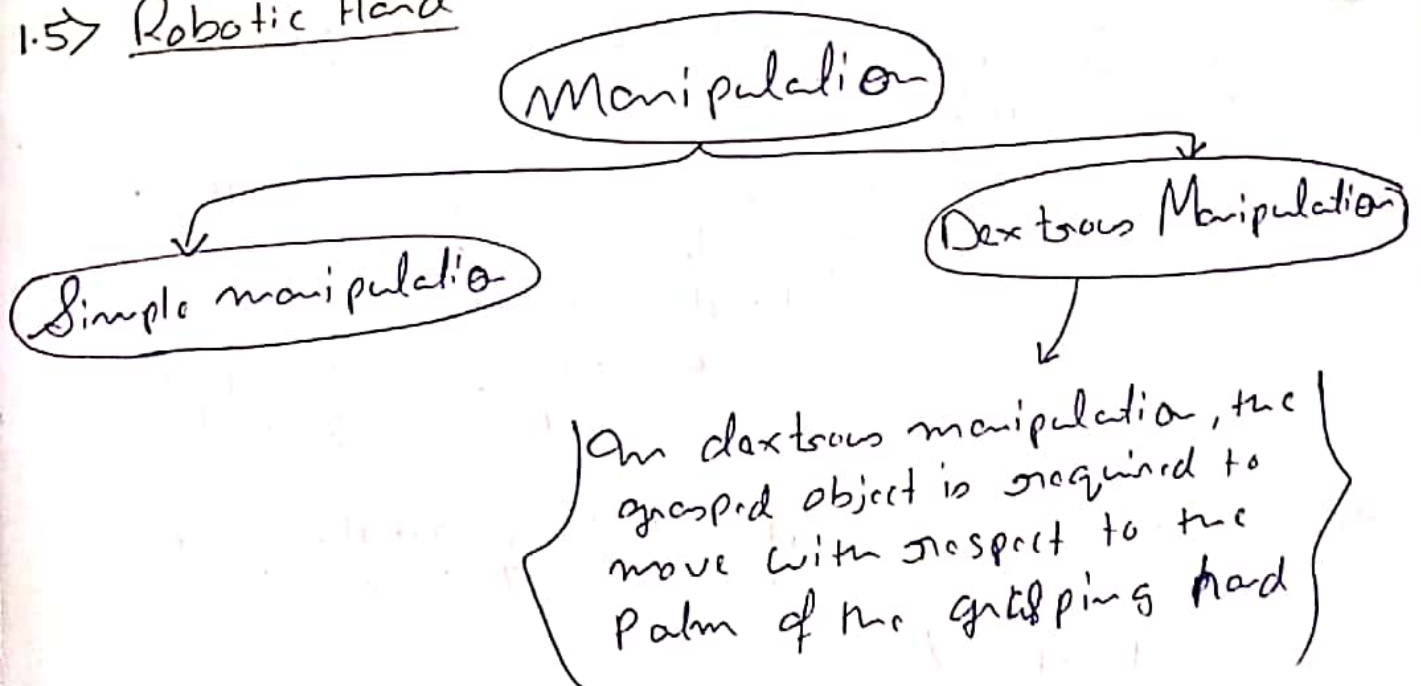 1.5> Robotic Hand
Manipulation
Simple manipulation
Dextrous Manipulation
In dextrous manipulation, the
grasped object is required to
move with respect to the
Palm of the gripping hand